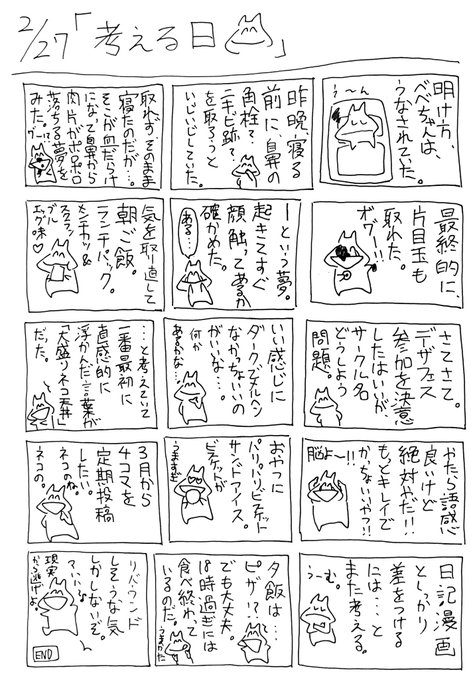 2/27「考える日」
明け方、
べべちゃんは、
うなされていた。
う〜ん
昨晩、寝る
前に、鼻の
角栓?
ニキビ跡?
を取ろうと
いじいじしていた。
取れず、そのまま
寝たのだが…。
そこが血だらけ
になって鼻から
肉片がボロボロ
落ちる夢を
みた。
最終的に、
片目玉も
取れた。
オワー!!
ーという夢。
起きてすぐ
顔触ってあるか
確かめた。
ある…
気を取り直して
朝ご飯。
ランチパック。
メンチカツ&
スクランブル
エッグ味♡
さてさて。
デザフェス
参加を決意
したはいいが、
サークル名
どうしよう
問題。
いい感じに
ダークでメルヘン
なかっちょいいの
がいいな…。
何か
あるかな…
…と考えていて
一番最初に
直感的に
浮かんだ言葉が
「大盛りネコ丼」
だった。
やたら語感
良いけど
絶対やだ!!
もっとキレイで
かっちょいいやつ!!
脳よ〜!!
おやつに
パリパリビスケット
サンドアイス。
ビスケットが
うますぎ
3月から
4コマを
定期投稿
したい。
ネコのね。
ネコの。
日記漫画
としっかり
差をつける
には…と
また考える。
うーむ。
夕飯は…
ピザ!?
でも大丈夫。
18時過ぎには
食べ終わって
いるのだ。
うまかた
リバウンド
しそうな気
しかしないぞ。
?いいな
現実
から逃げよ。
END